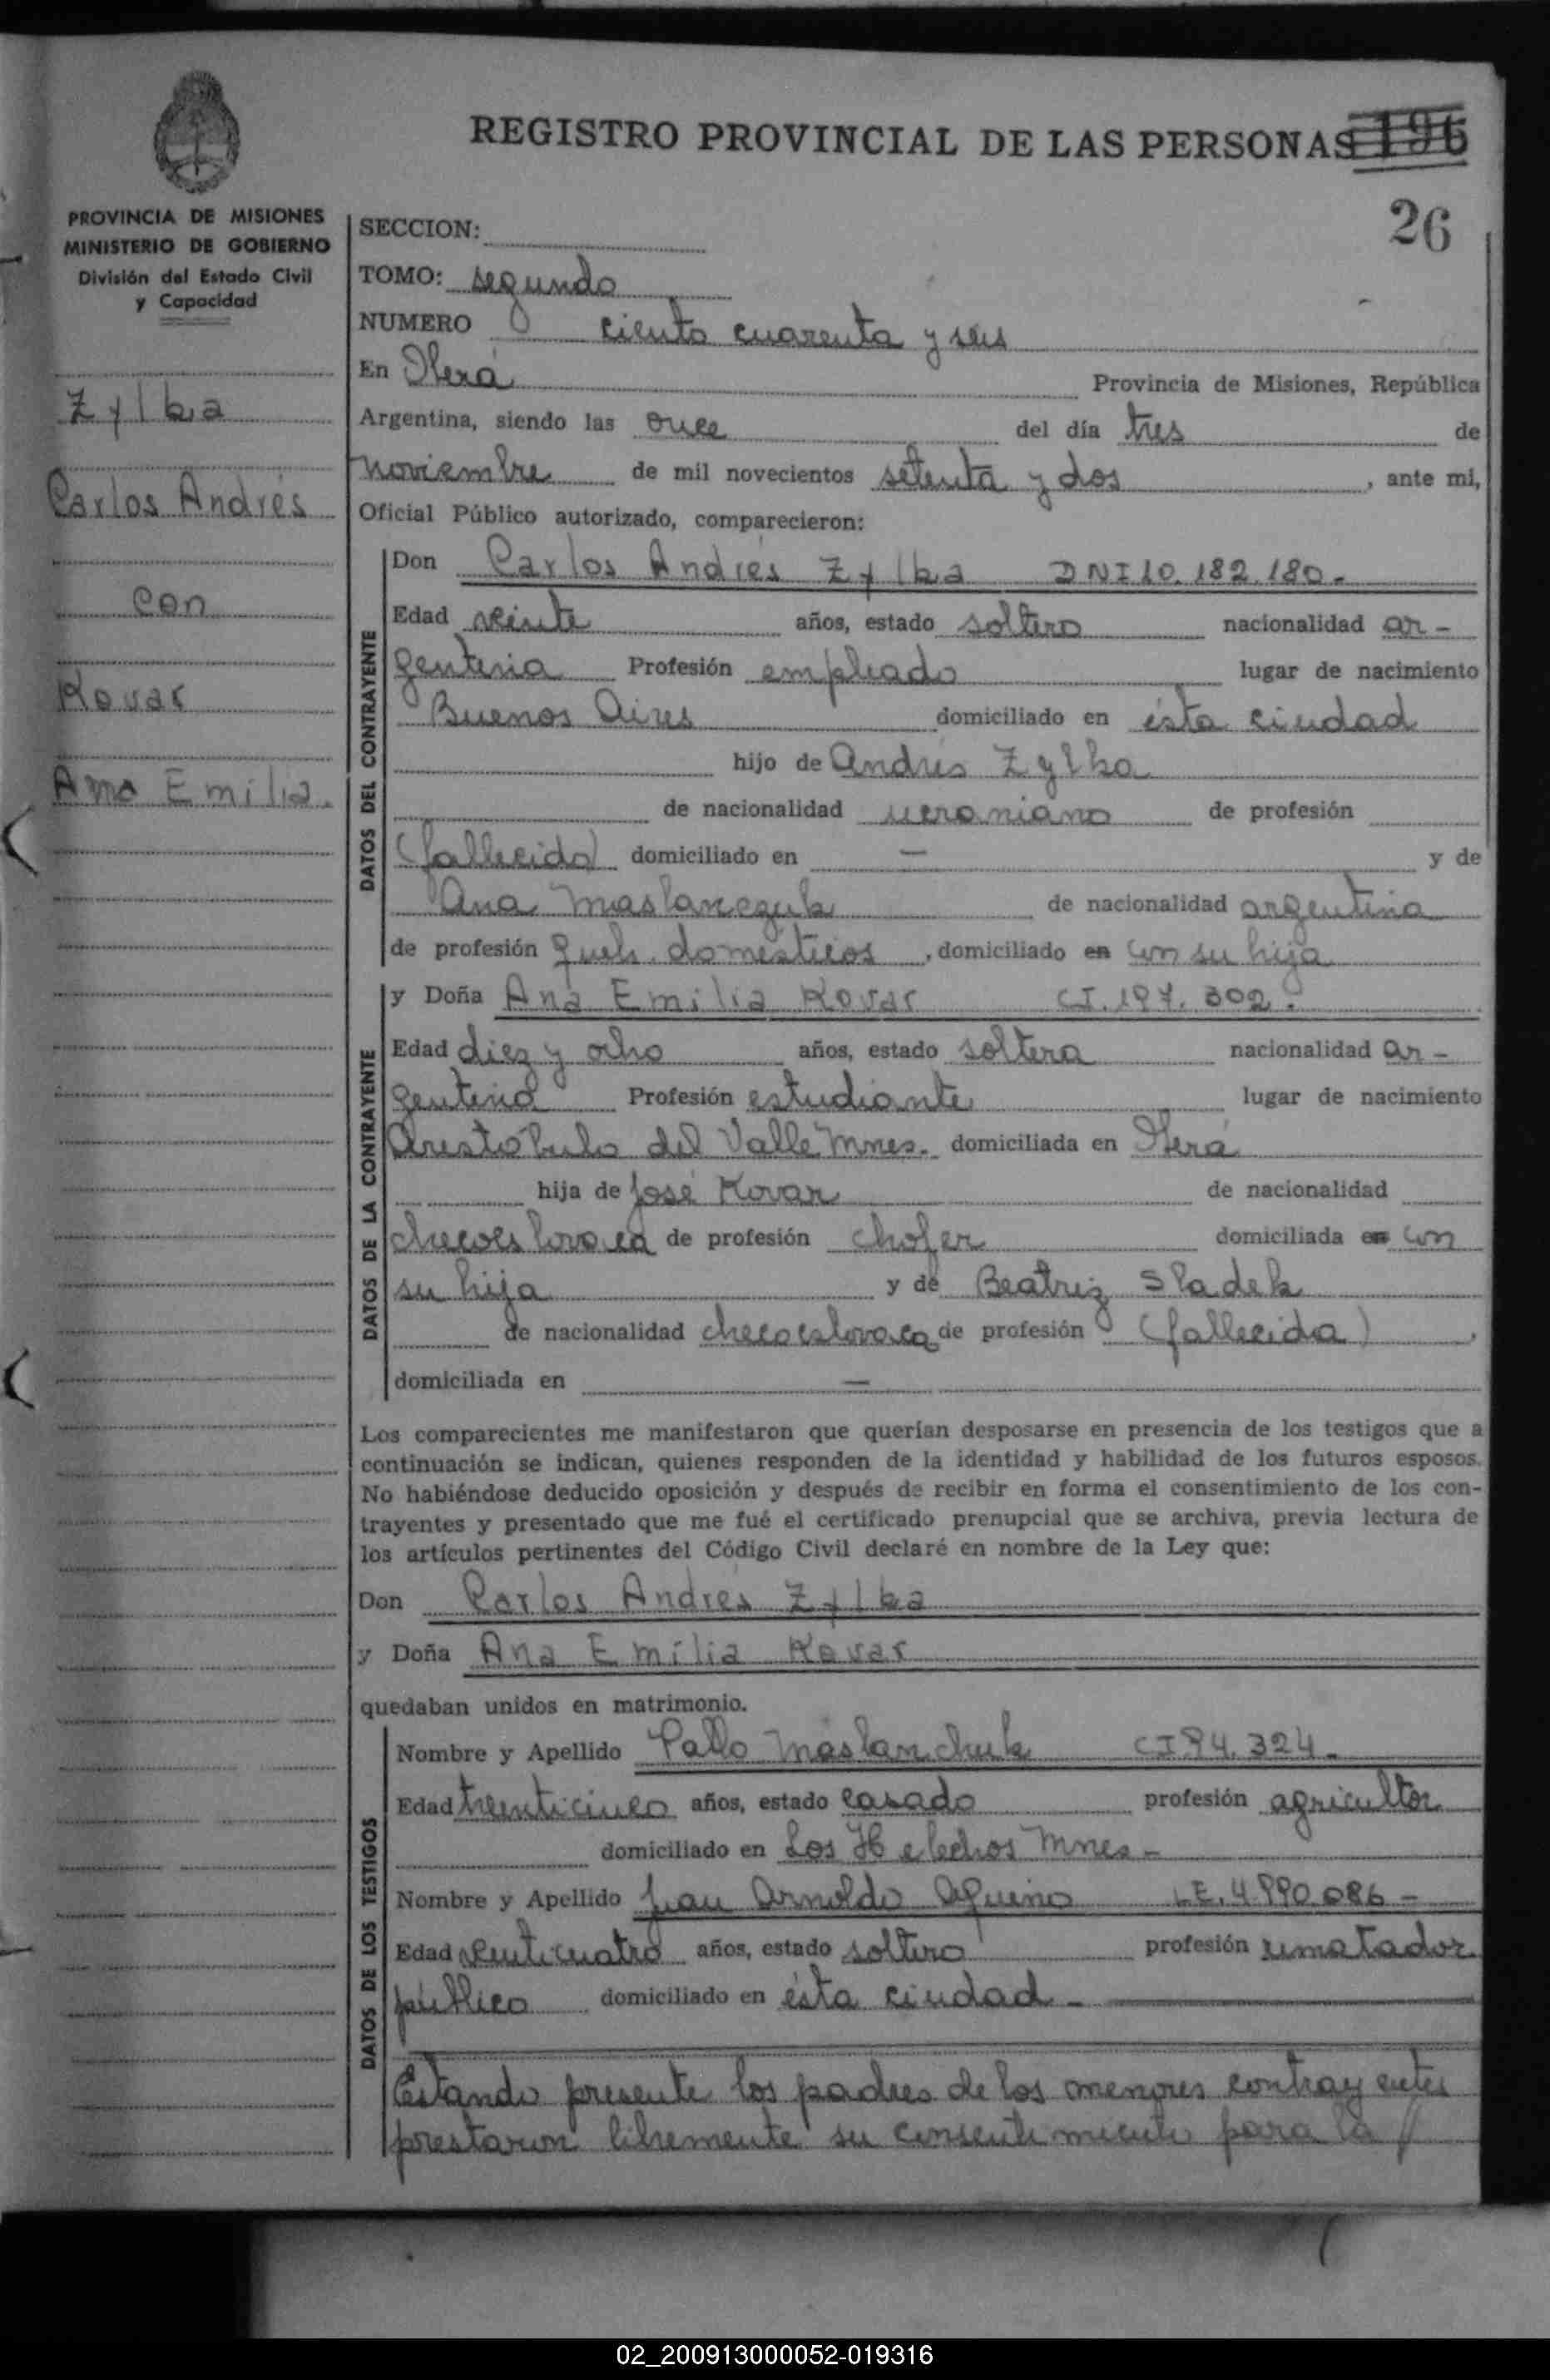 REGISTRO PROVINCIAL DE LAS PERSONAS 196
26
PROVINCIA DE MISIONES
MINISTERIO DE GOBIERNO
División del Estado Civil
y Capacidad
Zylka
Carlos Andrés
con
Kovar
Ana Emilia.
SECCION:
TOMO: segundo
NUMERO ciento cuarenta y seis
En Oberá Provincia de Misiones, República
Argentina, siendo las once del día tres de
noviembre de mil novecientos setenta y dos, ante mi,
Oficial Público autorizado, comparecieron:
DATOS DEL CONTRAYENTE
Don Carlos Andrés Zylka DNI 10.182.180.-
Edad veinte años, estado soltero nacionalidad ar-
gentina Profesión empleado lugar de nacimiento
Buenos Aires domiciliado en ésta ciudad
hijo de Andrés Zylka
de nacionalidad ucraniano de profesión
(fallecido) domiciliado en — y de
Ana Maslanczuk de nacionalidad argentina
de profesión queh. domésticos, domiciliado en con su hija
DATOS DE LA CONTRAYENTE
y Doña Ana Emilia Kovar CI. 197.302.
Edad diez y ocho años, estado soltera nacionalidad ar-
gentina Profesión estudiante lugar de nacimiento
Aristóbulo del Valle Mnes. domiciliada en Oberá
hija de José Kovar de nacionalidad
checoeslovaca de profesión chofer domiciliada en con
su hija y de Beatriz Sladek
de nacionalidad checoeslovaca de profesión (fallecida),
domiciliada en —
Los comparecientes me manifestaron que querían desposarse en presencia de los testigos que a
continuación se indican, quienes responden de la identidad y habilidad de los futuros esposos.
No habiéndose deducido oposición y después de recibir en forma el consentimiento de los con-
trayentes y presentado que me fué el certificado prenupcial que se archiva, previa lectura de
los artículos pertinentes del Código Civil declaré en nombre de la Ley que:
Don Carlos Andrés Zylka
y Doña Ana Emilia Kovar
quedaban unidos en matrimonio.
DATOS DE LOS TESTIGOS
Nombre y Apellido Pablo Maslanchuk CI 94.324.-
Edad treinticinco años, estado casado profesión agricultor
domiciliado en Los Helechos Mnes-
Nombre y Apellido Juan Arnoldo LE. 4.990.086-
Edad venticuatro años, estado soltero profesión rematador
público domiciliado en ésta ciudad-
Estando presente los padres de los menores contrayentes
prestaron libremente su consentimiento para la
02_200913000052-019316